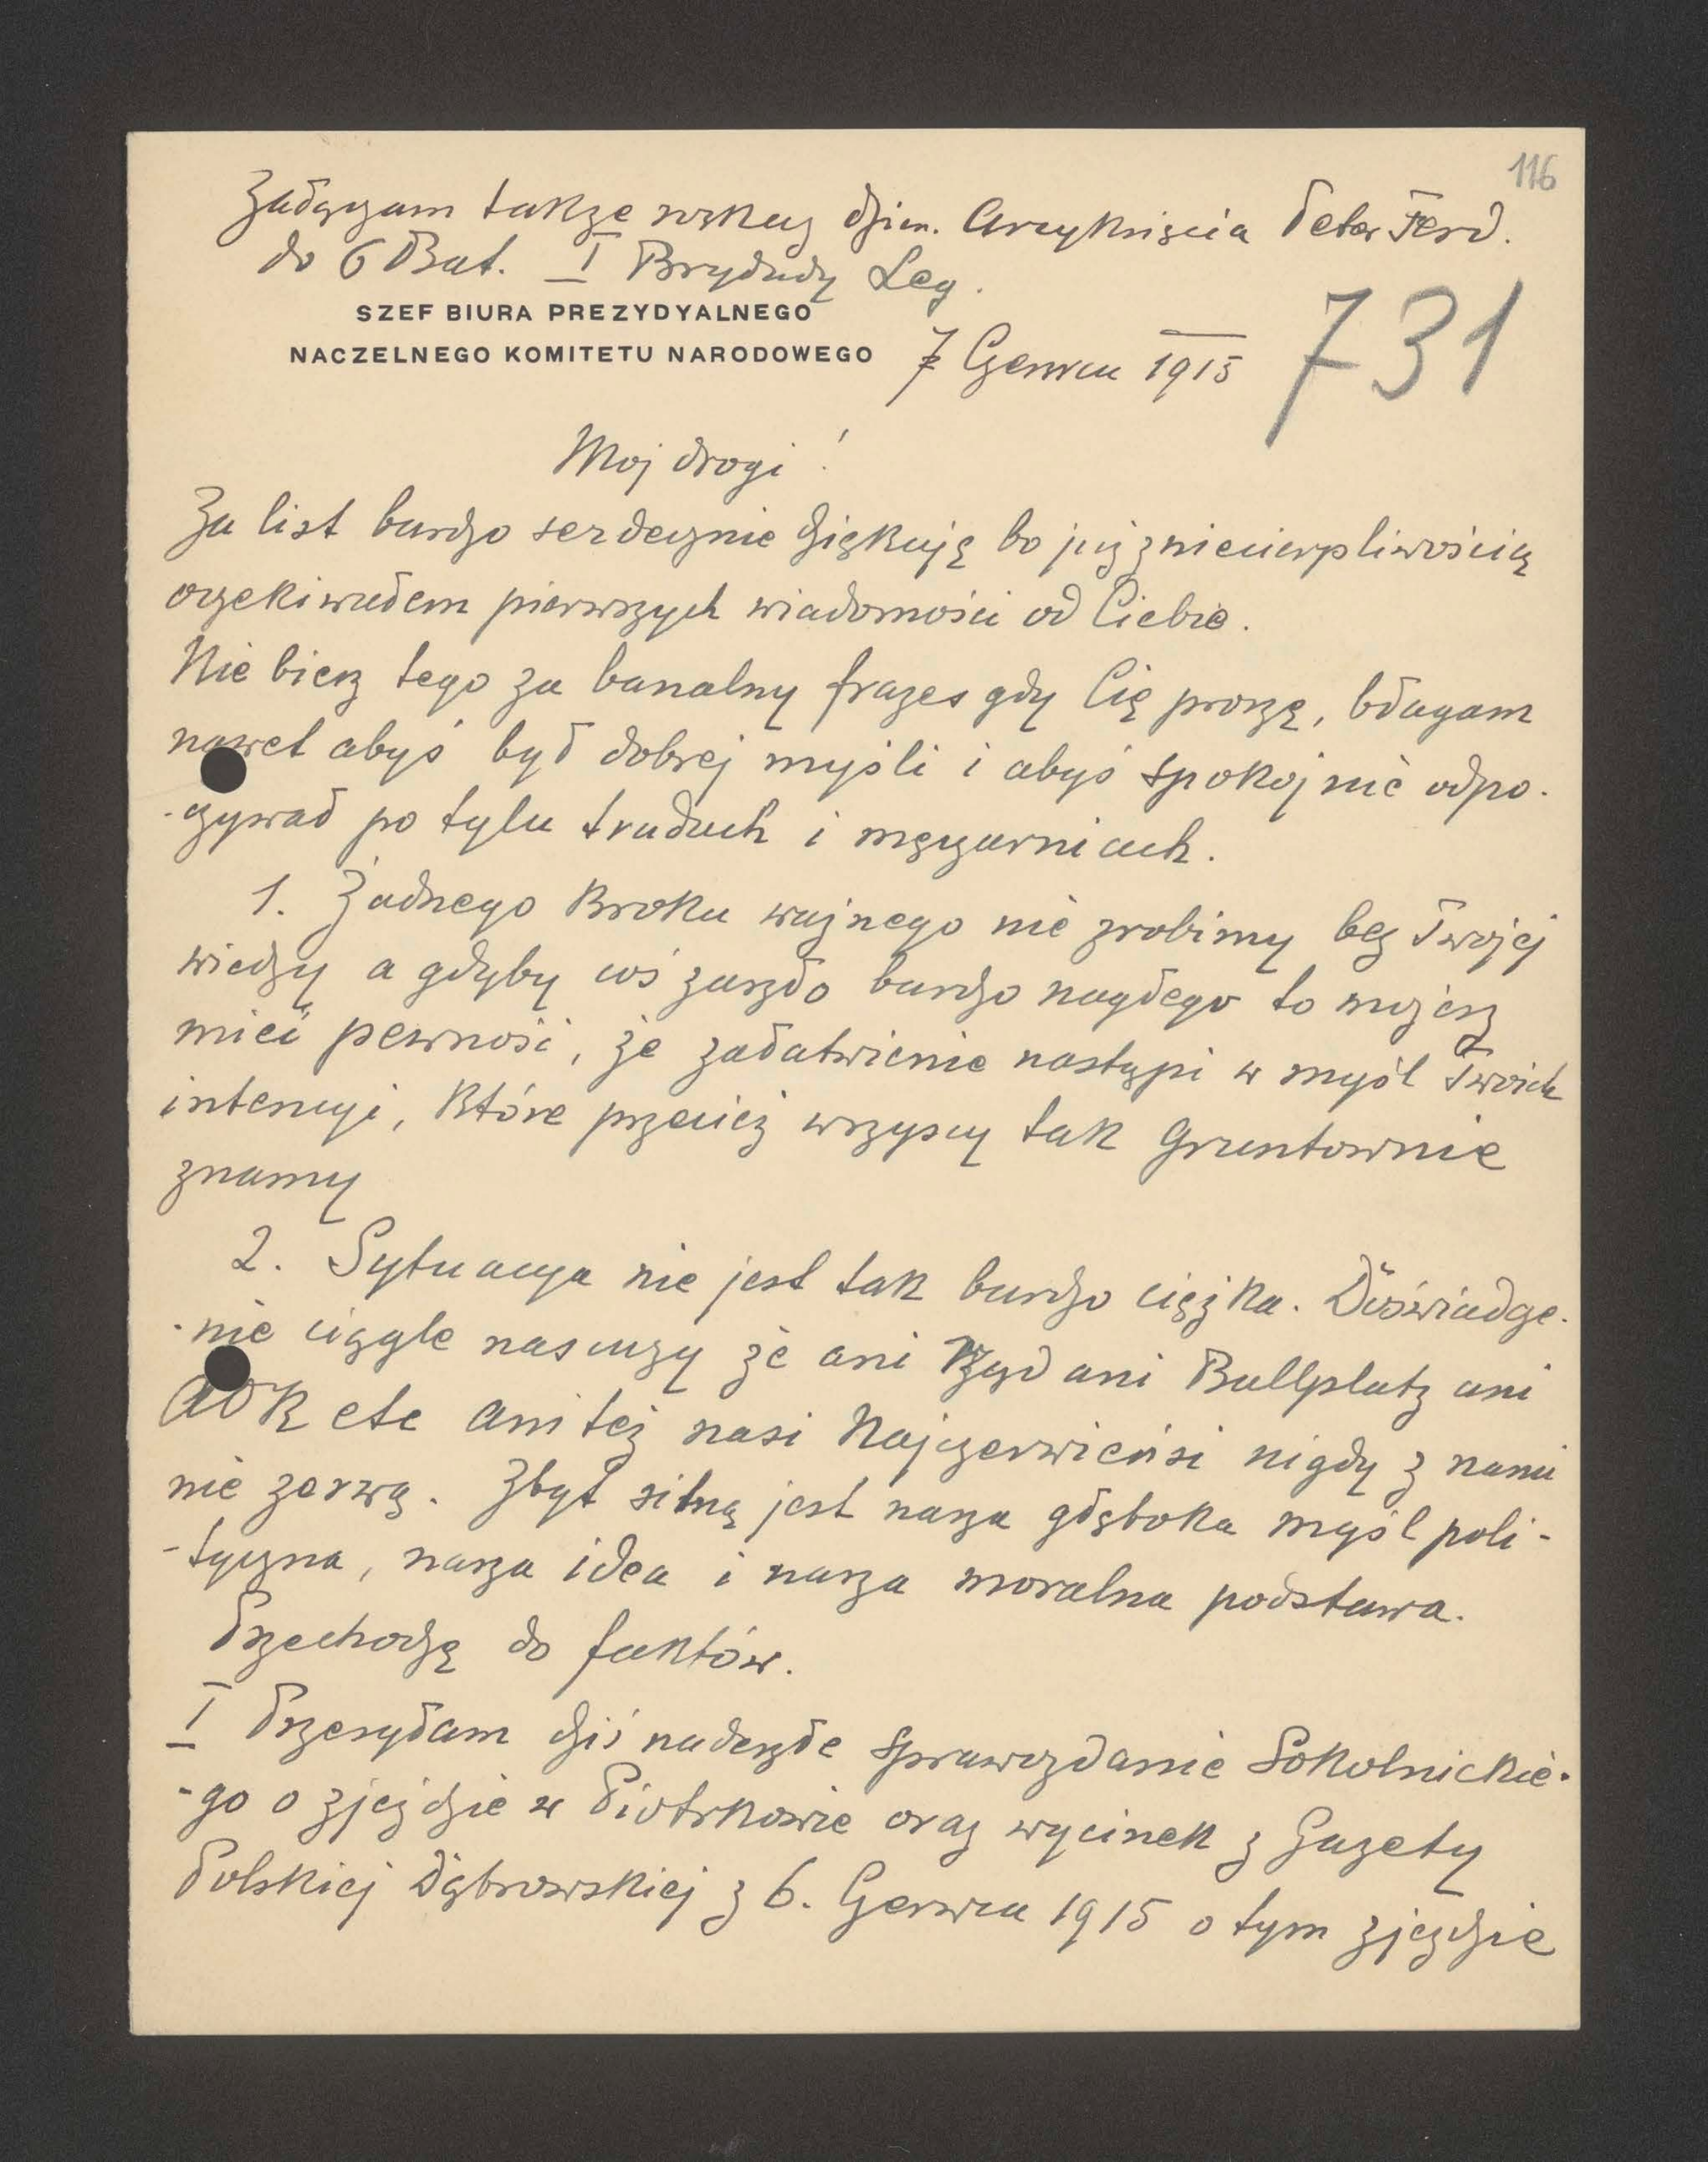 116
Załączam także rozkaz dzien. Arcyksięcia Peter Ferd.
do 6 Bat. I Brygady Leg.
SZEF BIURA PREZYDYALNEGO
NACZELNEGO KOMITETU NARODOWEGO
7 Czerwca 1915
731
Moj drogi!
Za list bardzo serdecznie dziękuję bo już z niecierpliwością
oczekiwałem pierwszych wiadomości od Ciebie.
Nie bierz tego za banalny frazes gdy Cię proszę, błagam
nawet abyś był dobrej myśli i abyś spokojnie odpo-
-czywał po tylu trudach i męczarniach.
1. Żadnego kroku ważnego nie zrobimy bez Twojej
wiedzy a gdyby coś zaszło bardzo nagłego to możesz
mieć pewność, że załatwienie nastąpi w myśl Twoich
intencyi, które przecież wszyscy tak gruntownie
znamy
2. Sytuacya nie jest tak bardzo ciężka. Doświadcze-
-nie ciągle nas uczy że ani Rząd ani Ballplatz ani
AOK etc ani też nasi Najczerwieńsi nigdy z nami
nie zerwą. Zbyt silną jest nasza głęboka myśl poli-
-tyczna, nasza idea i nasza moralna podstawa.
Przechodzę do faktów.
I Przesyłam dziś nadeszłe sprawozdanie Sokolnickie-
-go o zjeździe w Piotrkowie oraz wycinek z Gazety
Polskiej Dąbrowskiej z 6. Czerwca 1915 o tym zjeździe